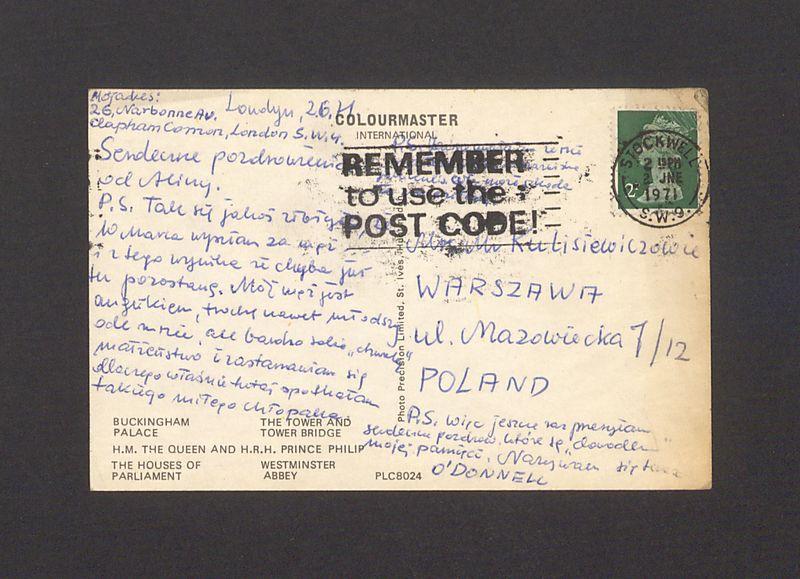 Mój adres:
26, Narbonne Av.
Clapham Common, London S.W.4.
Londyn, 2.6.71
COLOURMASTER
INTERNATIONAL
Serdeczne pozdrowienia
od Aliny.
P.S. Tak się jakoś
to Maria za mąż
i z tego wynika że chyba już
tu pozostanę. Mój mąż jest
anglikiem, trochę nawet młodszy
ode mnie, ale bardzo sobie „chwalę”
małżeństwo i zastanawiam się
dlaczego właśnie tutaj spotkałam
takiego miłego chłopaka.
P.S.
REMEMBER
to use the
POST CODE!
STOCKWELL
2 JNE
1971
S.W.9.
2P
Kulisiewiczowie
WARSZAWA
ul. Mazowiecka 7/12
POLAND
P.S. więc jeszcze raz przesyłam
serdeczne pozdrow. które są „dowodem”
mojej pamięci. Nazywam się teraz
O'DONNELL
Photo Precision Limited, St. Ives,
BUCKINGHAM
PALACE
THE TOWER AND
TOWER BRIDGE
H.M. THE QUEEN AND H.R.H. PRINCE PHILIP
THE HOUSES OF
PARLIAMENT
WESTMINSTER
ABBEY
PLC8024